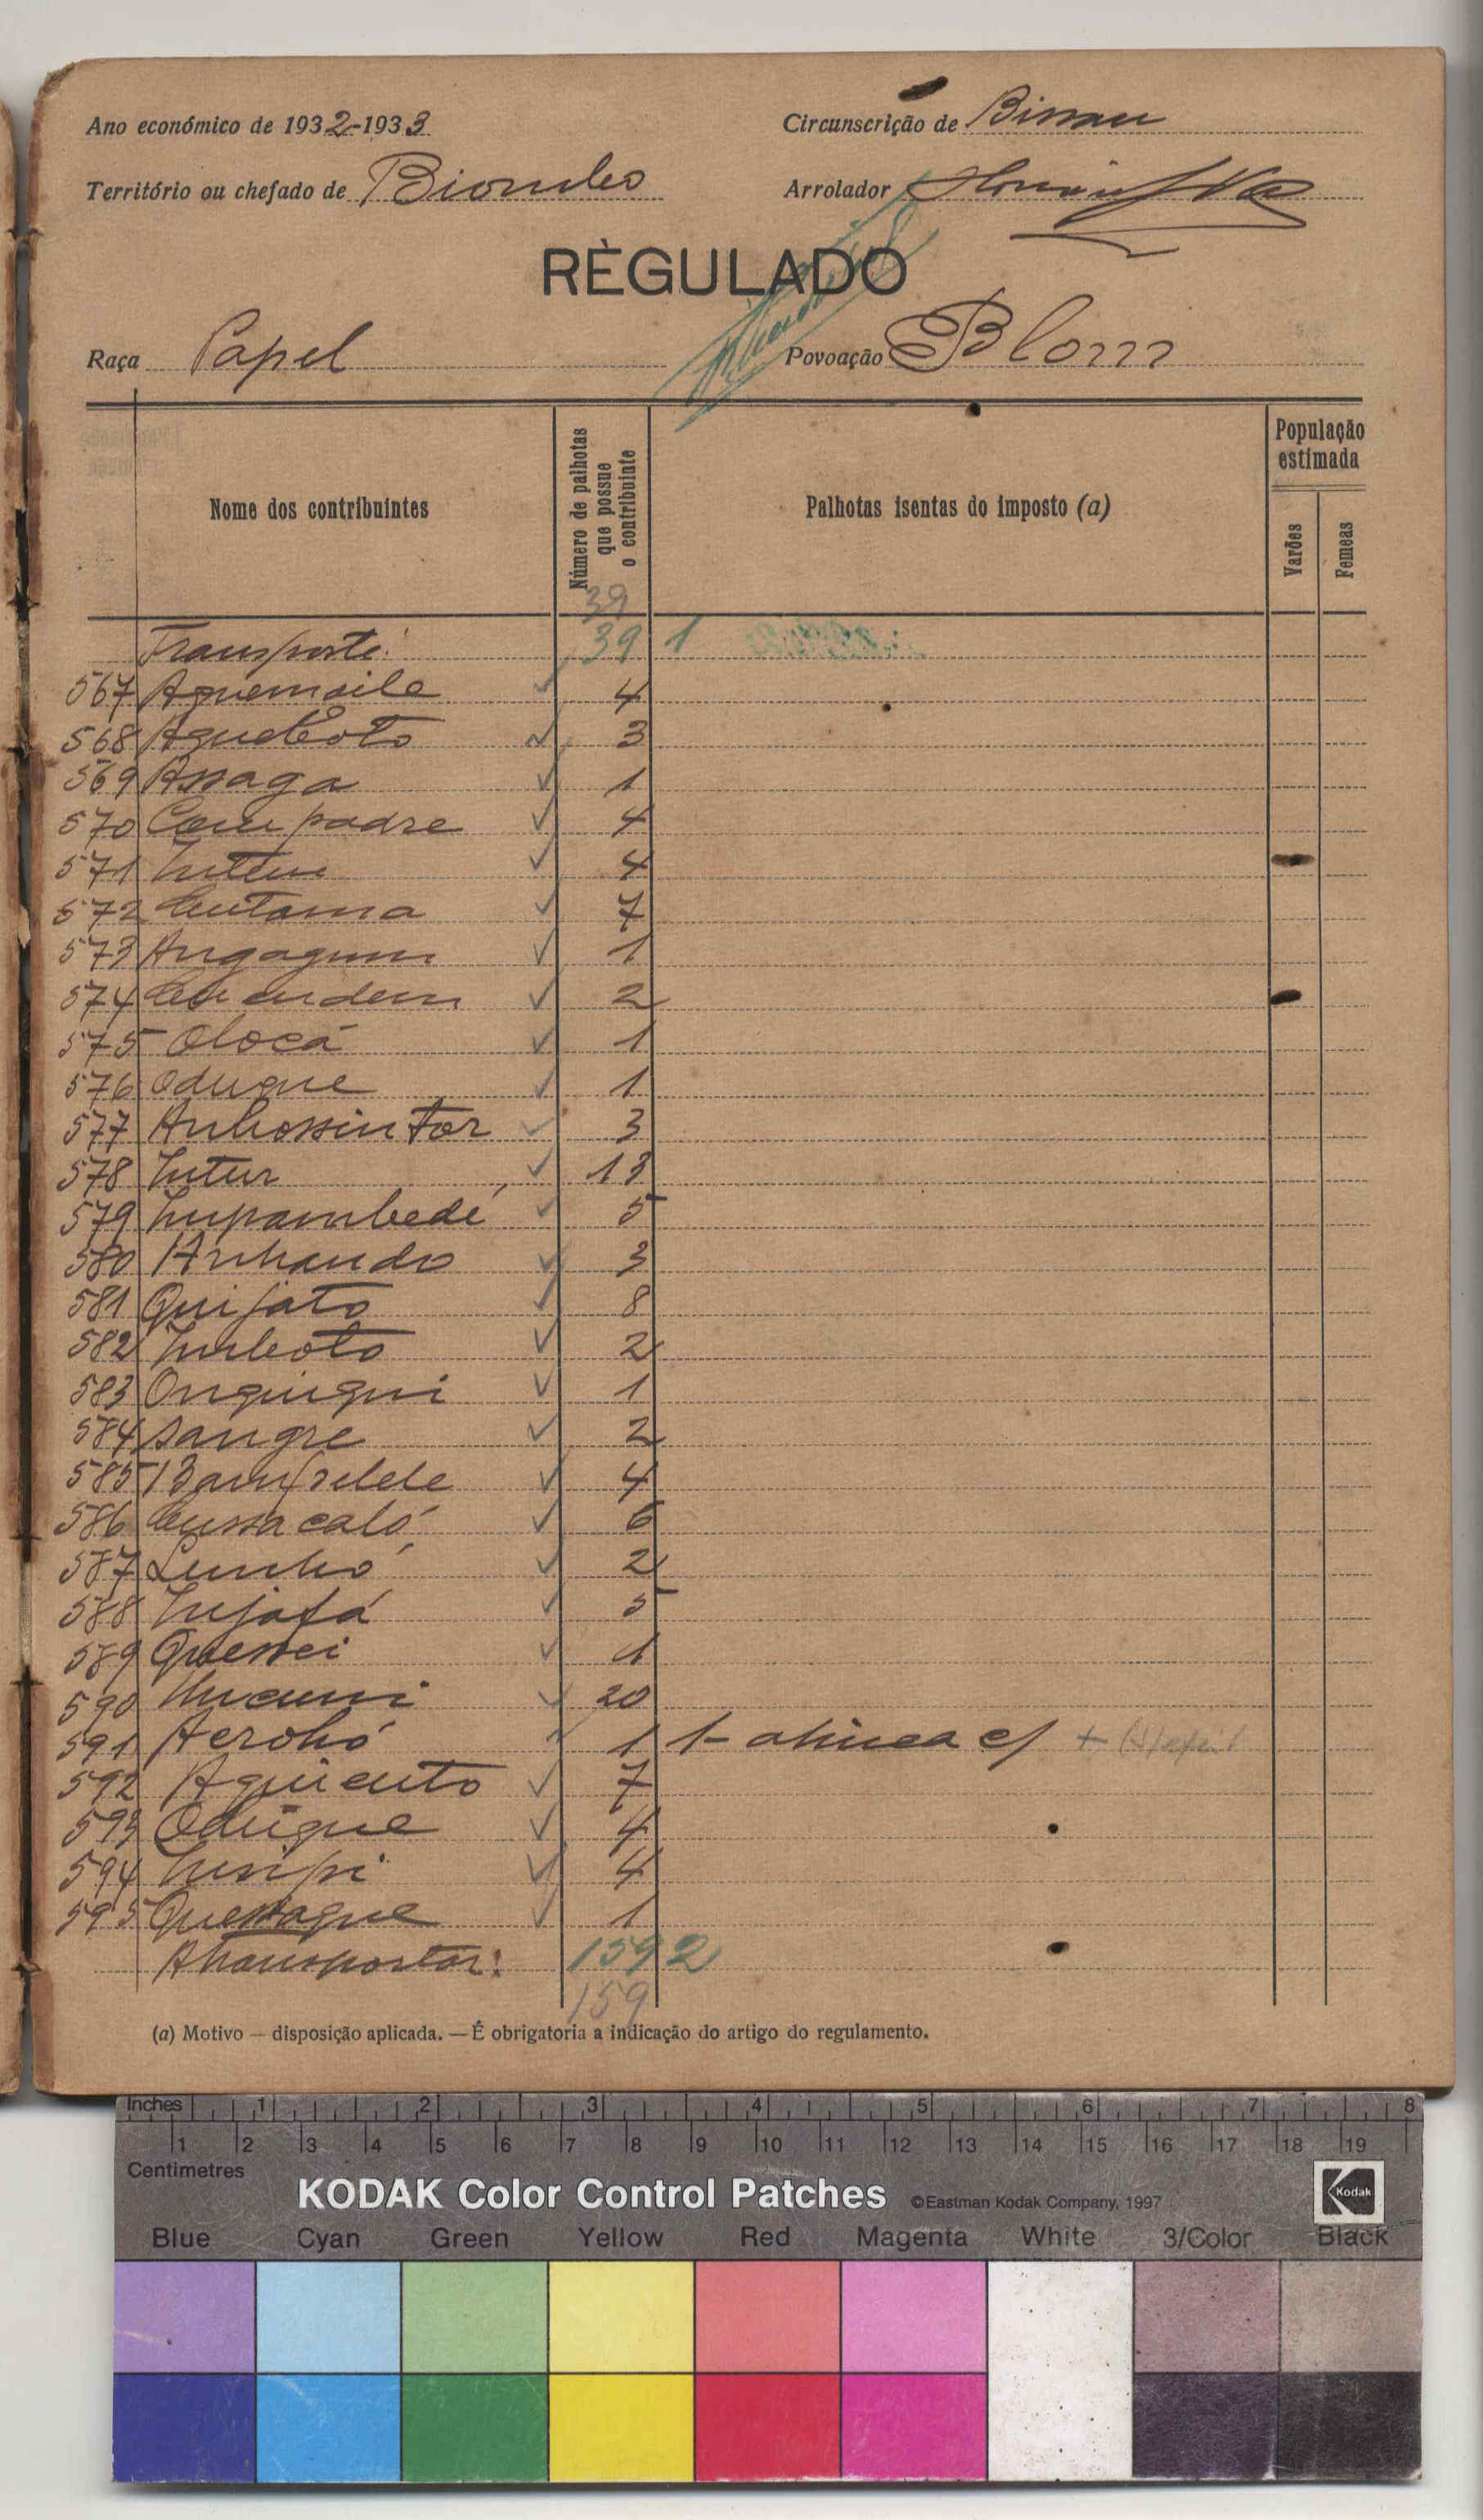 Ano económico de 1932-1933
Circunscrição de Bissau
Território ou chefado de Biombo
Arrolador
RÈGULADO
Raça Papel
Povoação Blom
Nome dos contribuintes
Número de palhotas que possue o contribuinte
Palhotas isentas do imposto (a)
População estimada
Varões
Femeas
39
Transporte: 39 1
567 4
568 Aqueboto 3
569 Assaga 1
570 Compadre 4
571 4
572 7
573 1
574 2
575 Olocá 1
576 Oduque 1
577 3
578 Intur 13
579 5
580 Anhando 3
581 Quijato 8
582 Imboto 2
583 Onquiqui 1
584 Sangre 2
585 4
586 Cussa caló 6
587 2
588 5
589 Quessei 1
590 20
591 1 1- alinea c)
592 7
593 Oduque 4
594 4
595 Quessaque 1
A transportar: 159 2
159
(a) Motivo — disposição aplicada. — É obrigatoria a indicação do artigo do regulamento.
Inches 1 2 3 4 5 6 7 8
1 2 3 4 5 6 7 8 9 10 11 12 13 14 15 16 17 18 19
Centimetres
KODAK Color Control Patches ©Eastman Kodak Company, 1997 Kodak
Blue Cyan Green Yellow Red Magenta White 3/Color Black